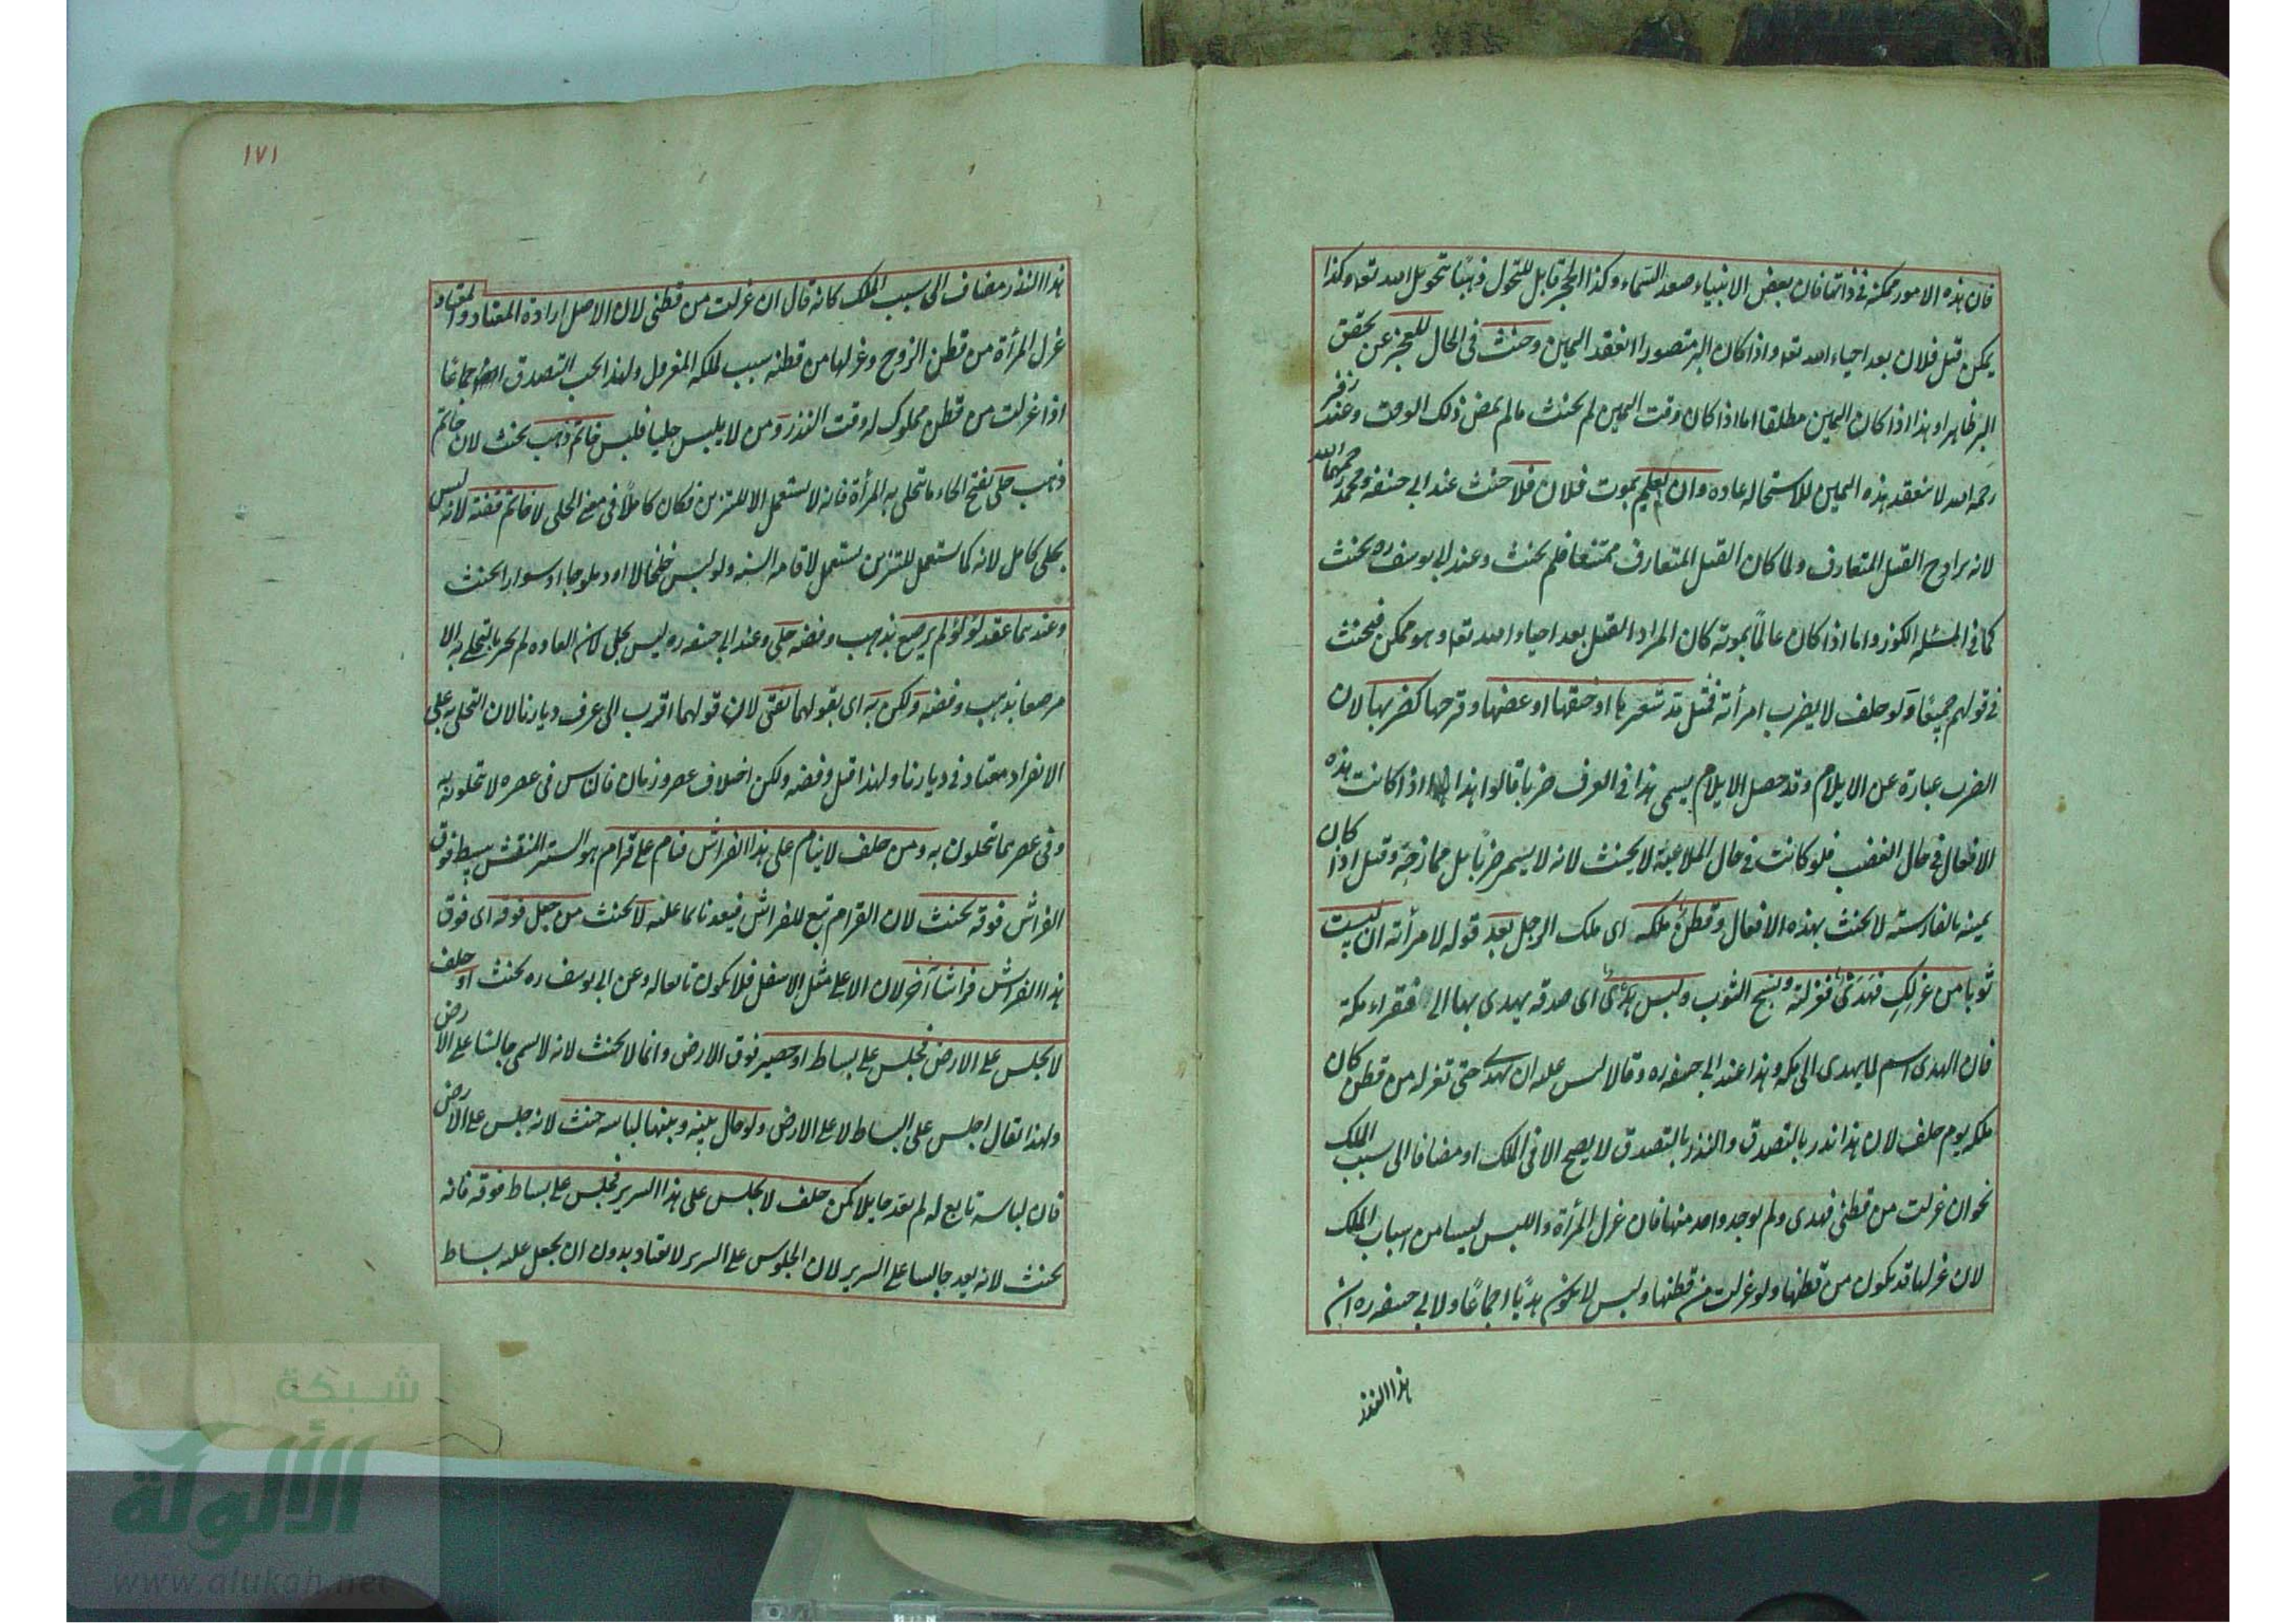 فان هذه الامور ممكنة فى ذاتها فان بعض الانبياء صعد السماء وكذا الحجر قابل للتحول ذهبًا بتحويل الله تعا وكذا
يمكن قتل فلان بعد احياء الله تعا واذا كان البر متصورا انعقد اليمين وحنث فى الحال للعجز عن تحقق
البر ظاهرا وهذا اذا كان اليمين مطلقا اما اذا كان وقت اليمين لم يحنث ما لم يمض ذلك الوقت وعند زفر
رحمه الله لا ينعقد هذه اليمين للاستحالة عادة وان لم يعلم بموت فلان فلا حنث عند ابى حنيفة ومحمد رحمهما الله
لانه يراد القتل المتعارف ولما كان القتل المتعارف ممتنعا فلم يحنث وعند ابى يوسف ره يحنث
كما فى المسئلة الكوز واما اذا كان عالمًا بموته كان المراد القتل بعد احياء الله تعا وهو ممكن فيحنث
فى قولهم جميعًا ولو حلف لا يضرب امرأته فمثل مد شعرها او خنقها او عضها وقرحها كضربها لان
الضرب عبارة عن الايلام وقد حصل الايلام يسمى هذا فى العرف ضربا قالوا هذا اذا كانت هذه
الافعال فى حال الغضب فلو كانت فى حال الملاعبة لا يحنث لانه لا يسمى ضربًا بل ممازحة وقيل اذا كان
يمينه بالفارسية لا يحنث بهذه الافعال وقطن ملكه اى ملك الرجل بعد قوله لامرأته ان لبست
ثوبا من غزلك فهدى فغزلته ونسج الثوب ولبس هدى اى صدقة يهدى بها الى فقراء مكة
فان الهدى اسم لما يهدى الى مكة وهذا عند ابى حنيفة ره وقالا ليس عليه ان يهدى حتى تغزله من قطن كان
ملكه يوم حلف لان هذا نذر بالتصدق والنذر بالتصدق لا يصح الا فى الملك او مضافا الى سبب الملك
نحو ان غزلت من قطنى فهدى ولم يوجد واحد منها فان غزل المرأة واللبس ليسا من اسباب الملك
لان غزلها قد يكون من قطنها ولو غزلت من قطنها ولبس لا يكون هديًا اجماعًا ولابى حنيفة ره ان
هذا النذر
١٧١
هذا النذر مضاف الى سبب الملك كانه قال ان غزلت من قطنى لان الاصل ارادة المعتاد والمعتاد
غزل المرأة من قطن الزوج وغزلها من قطنه سبب لملكه المغزول ولهذا يجب التصدق اجماعًا
اذا غزلت من قطن مملوك له وقت النذر ومن لا يلبس حليا فلبس خاتم ذهب يحنث لان خاتم
ذهب حلى بفتح الحاء ما تتحلى به المرأة فانه لا يستعمل الا للتزين فكان كاملًا فى معنى الحلى لا خاتم فضة لانه ليس
بحلى كامل لانه كما يستعمل للتزين يستعمل لاقامة السنة ولو لبس خلخالا او دملوجا او سوارا يحنث
وعندهما عقد لؤلؤ لم يرصع بذهب وفضة حلى وعند ابى حنيفة ره ليس بحلى لان العادة لم يجر بالتحلى به الا
مرصعا بذهب وفضة ولكن به اى بقولهما نفتى لان قولهما اقرب الى عرف ديارنا لان التحلى به على
الانفراد معتاد فى ديارنا ولهذا قيل وفضة ولكن اختلاف عصر وزمان فان الناس فى عصره لا تتحلون به
وفى عصرهما تتحلون به ومن حلف لا ينام على هذا الفراش فنام على قرام هو الستر المنقش يبسط فوق
الفراش فوقه يحنث لان القرام تبع للفراش فيعد نائما عليه لا يحنث من جعل فوقه اى فوق
هذا الفراش فراشا آخر لان الاعلى مثل الاسفل فلا يكون تابعا له وعن ابى يوسف ره يحنث او حلف
لا يجلس على الارض فجلس على بساط او حصير فوق الارض وانما لا يحنث لانه لا يسمى جالسا على الارض
ولهذا يقال اجلس على البساط لا على الارض ولو حال بينه وبينها لباسه حنث لانه جلس على الارض
فان لباسه تابع له لم يعد حايلا كمن حلف لا يجلس على هذا السرير فجلس على بساط فوقه فانه
يحنث لانه يعد جالسا على السرير لان الجلوس على السرير لا يعتاد بدون ان يجعل عليه بساط
شبكة
الألوكة
www.alukah.net